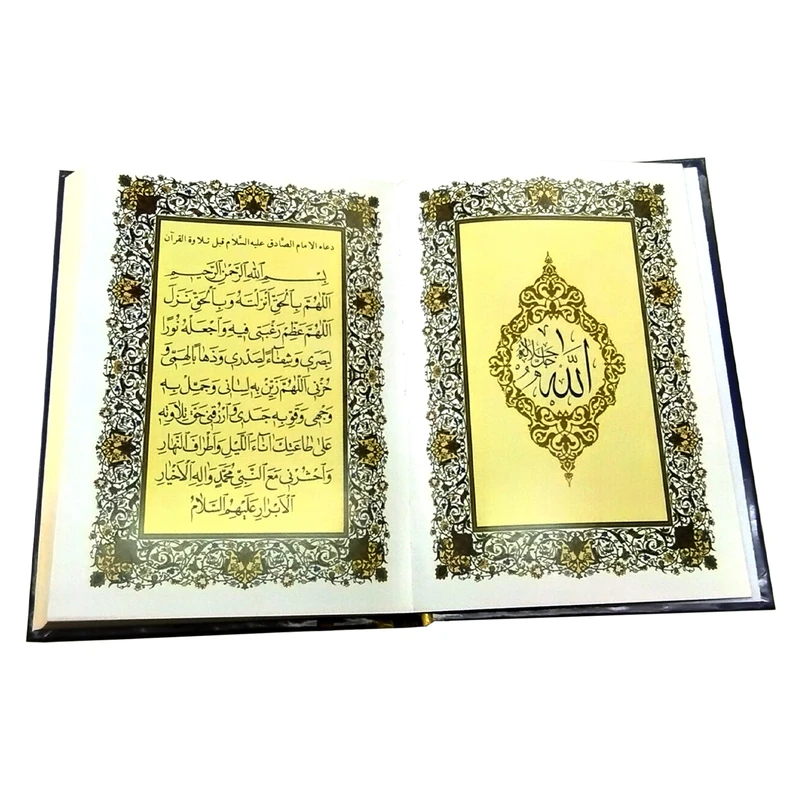 الله جل جلاله
دعاء الامام الصّادق عليه السّلام قبل تلاوة القرآن
بِسْمِ اللهِ الرَّحْمٰنِ الرَّحِيمِ
اَللّٰهُمَّ بِالْحَقِّ اَنْزَلْتَهُ وَبِالْحَقِّ نَزَلَ
اَللّٰهُمَّ عَظِّمْ رَغْبَتى فيهِ وَاجْعَلْهُ نُورًا
لِبَصَرى وَشِفَاءً لِصَدْرى وَذَهَابًا لِهَمّى وَ
حُزْنى اَللّٰهُمَّ زَيِّنْ بِهِ لِسَانى وَجَمِّلْ بِهِ
وَجْهى وَقَوِّ بِهِ جَسَدى وَارْزُقْنى حَقَّ تِلَاوَتِهِ
عَلٰى طَاعَتِكَ اٰنَاءَ اللَّيْلِ وَاَطْرَافَ النَّهَارِ
وَاحْشُرْنى مَعَ النَّبِيِّ مُحَمَّدٍ وَاٰلِهِ الْاَخْيَارِ
الْاَبْرَارِ عَلَيْهِمُ السَّلَامُ